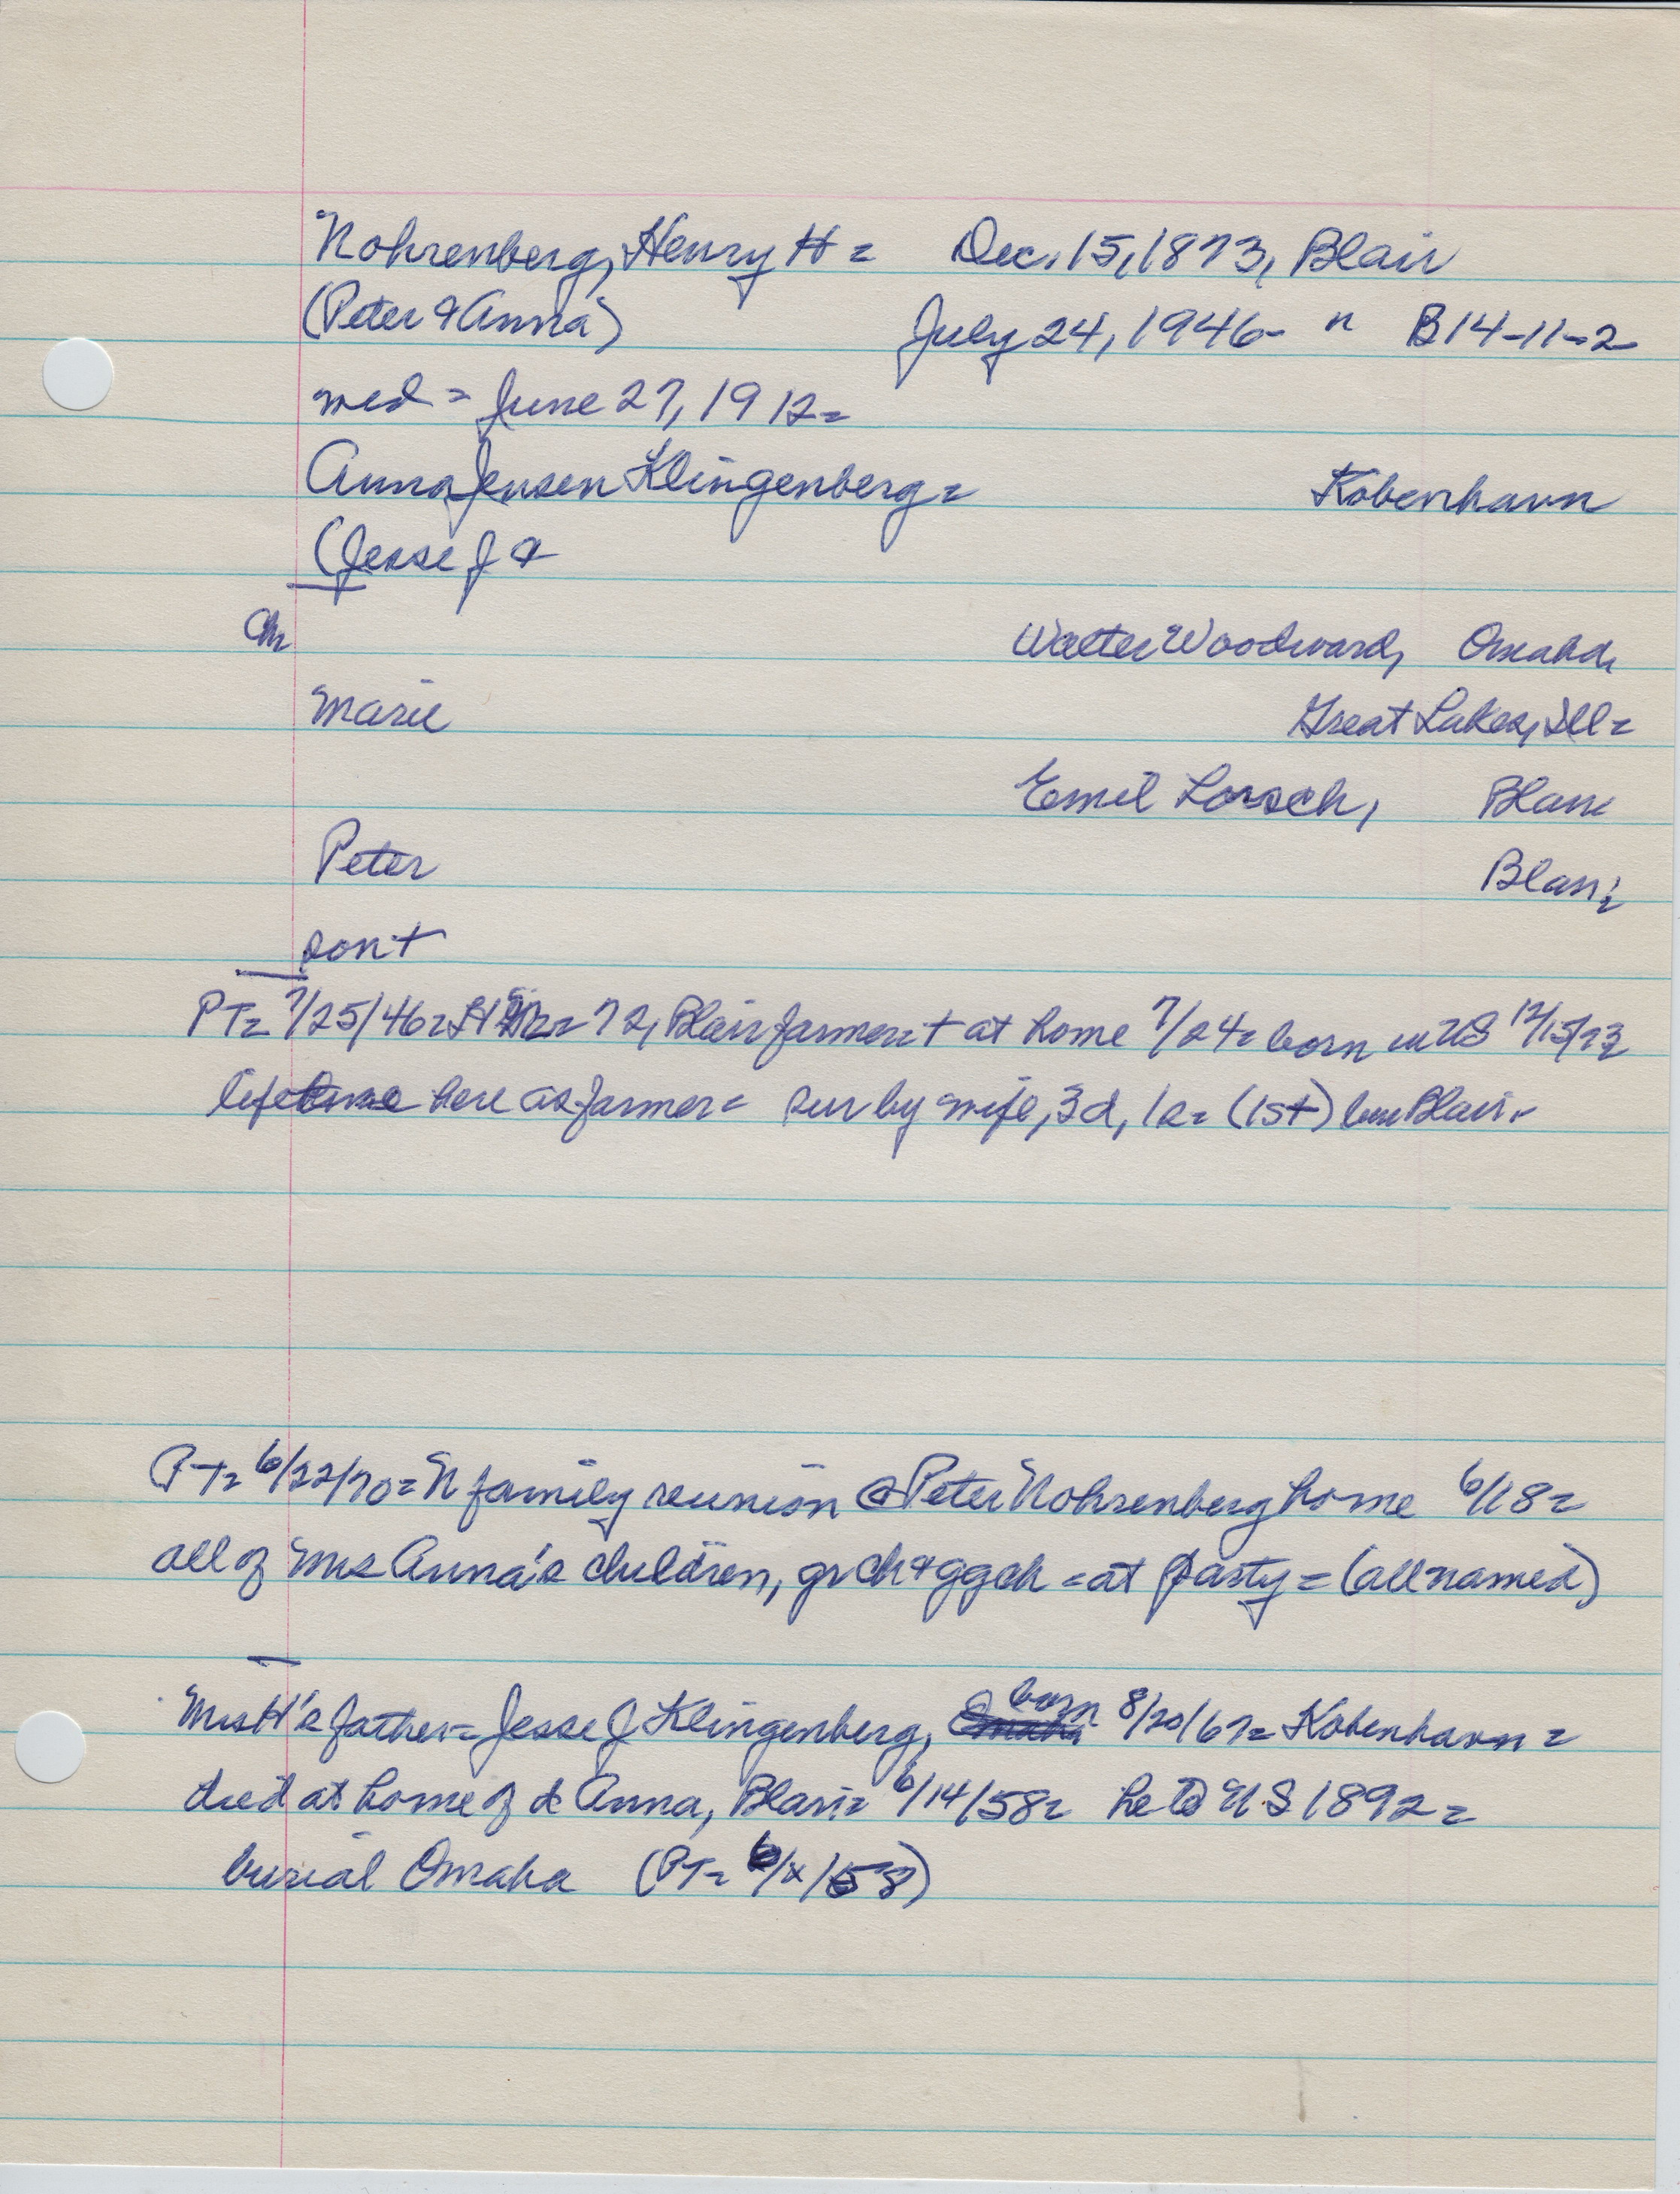 Nohrenberg, Henry H = Dec. 15, 1873, Blair
(Peter & Anna) July 24, 1946 - " B14-11-2
med = June 27, 1912 =
Anna Jensen Klingenberg = Kobenhavn
(Jesse J &
Ch
Walter Woodward, Omaha
Marie Great Lakes, Ill =
Emil Lorsch, Blair
Peter Blair =
son +
PT = 7/25/46 = H = 72, Blair farmer = + at home 7/24 = born in US 12/15/73
lifetime here as farmer = sur by wife, 3d, 1s = (1s+) bur Blair.
PT = 6/22/70 = N family reunion @ Peter Nohrenberg home 6/18 =
all of Mrs Anna's children, gr ch & ggch = at party = (all named)
Mrs H's father = Jesse J Klingenberg, born 8/20/67 = Kobenhavn =
died at home of d Anna, Blair = 6/14/58 = he to U.S 1892 =
burial Omaha (PT = 6/x/58)